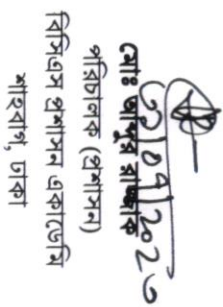 মোঃ আব্দুর রাজ্জাক
পরিচালক (প্রশাসন)
বিসিএস প্রশাসন একাডেমি
শাহবাগ, ঢাকা